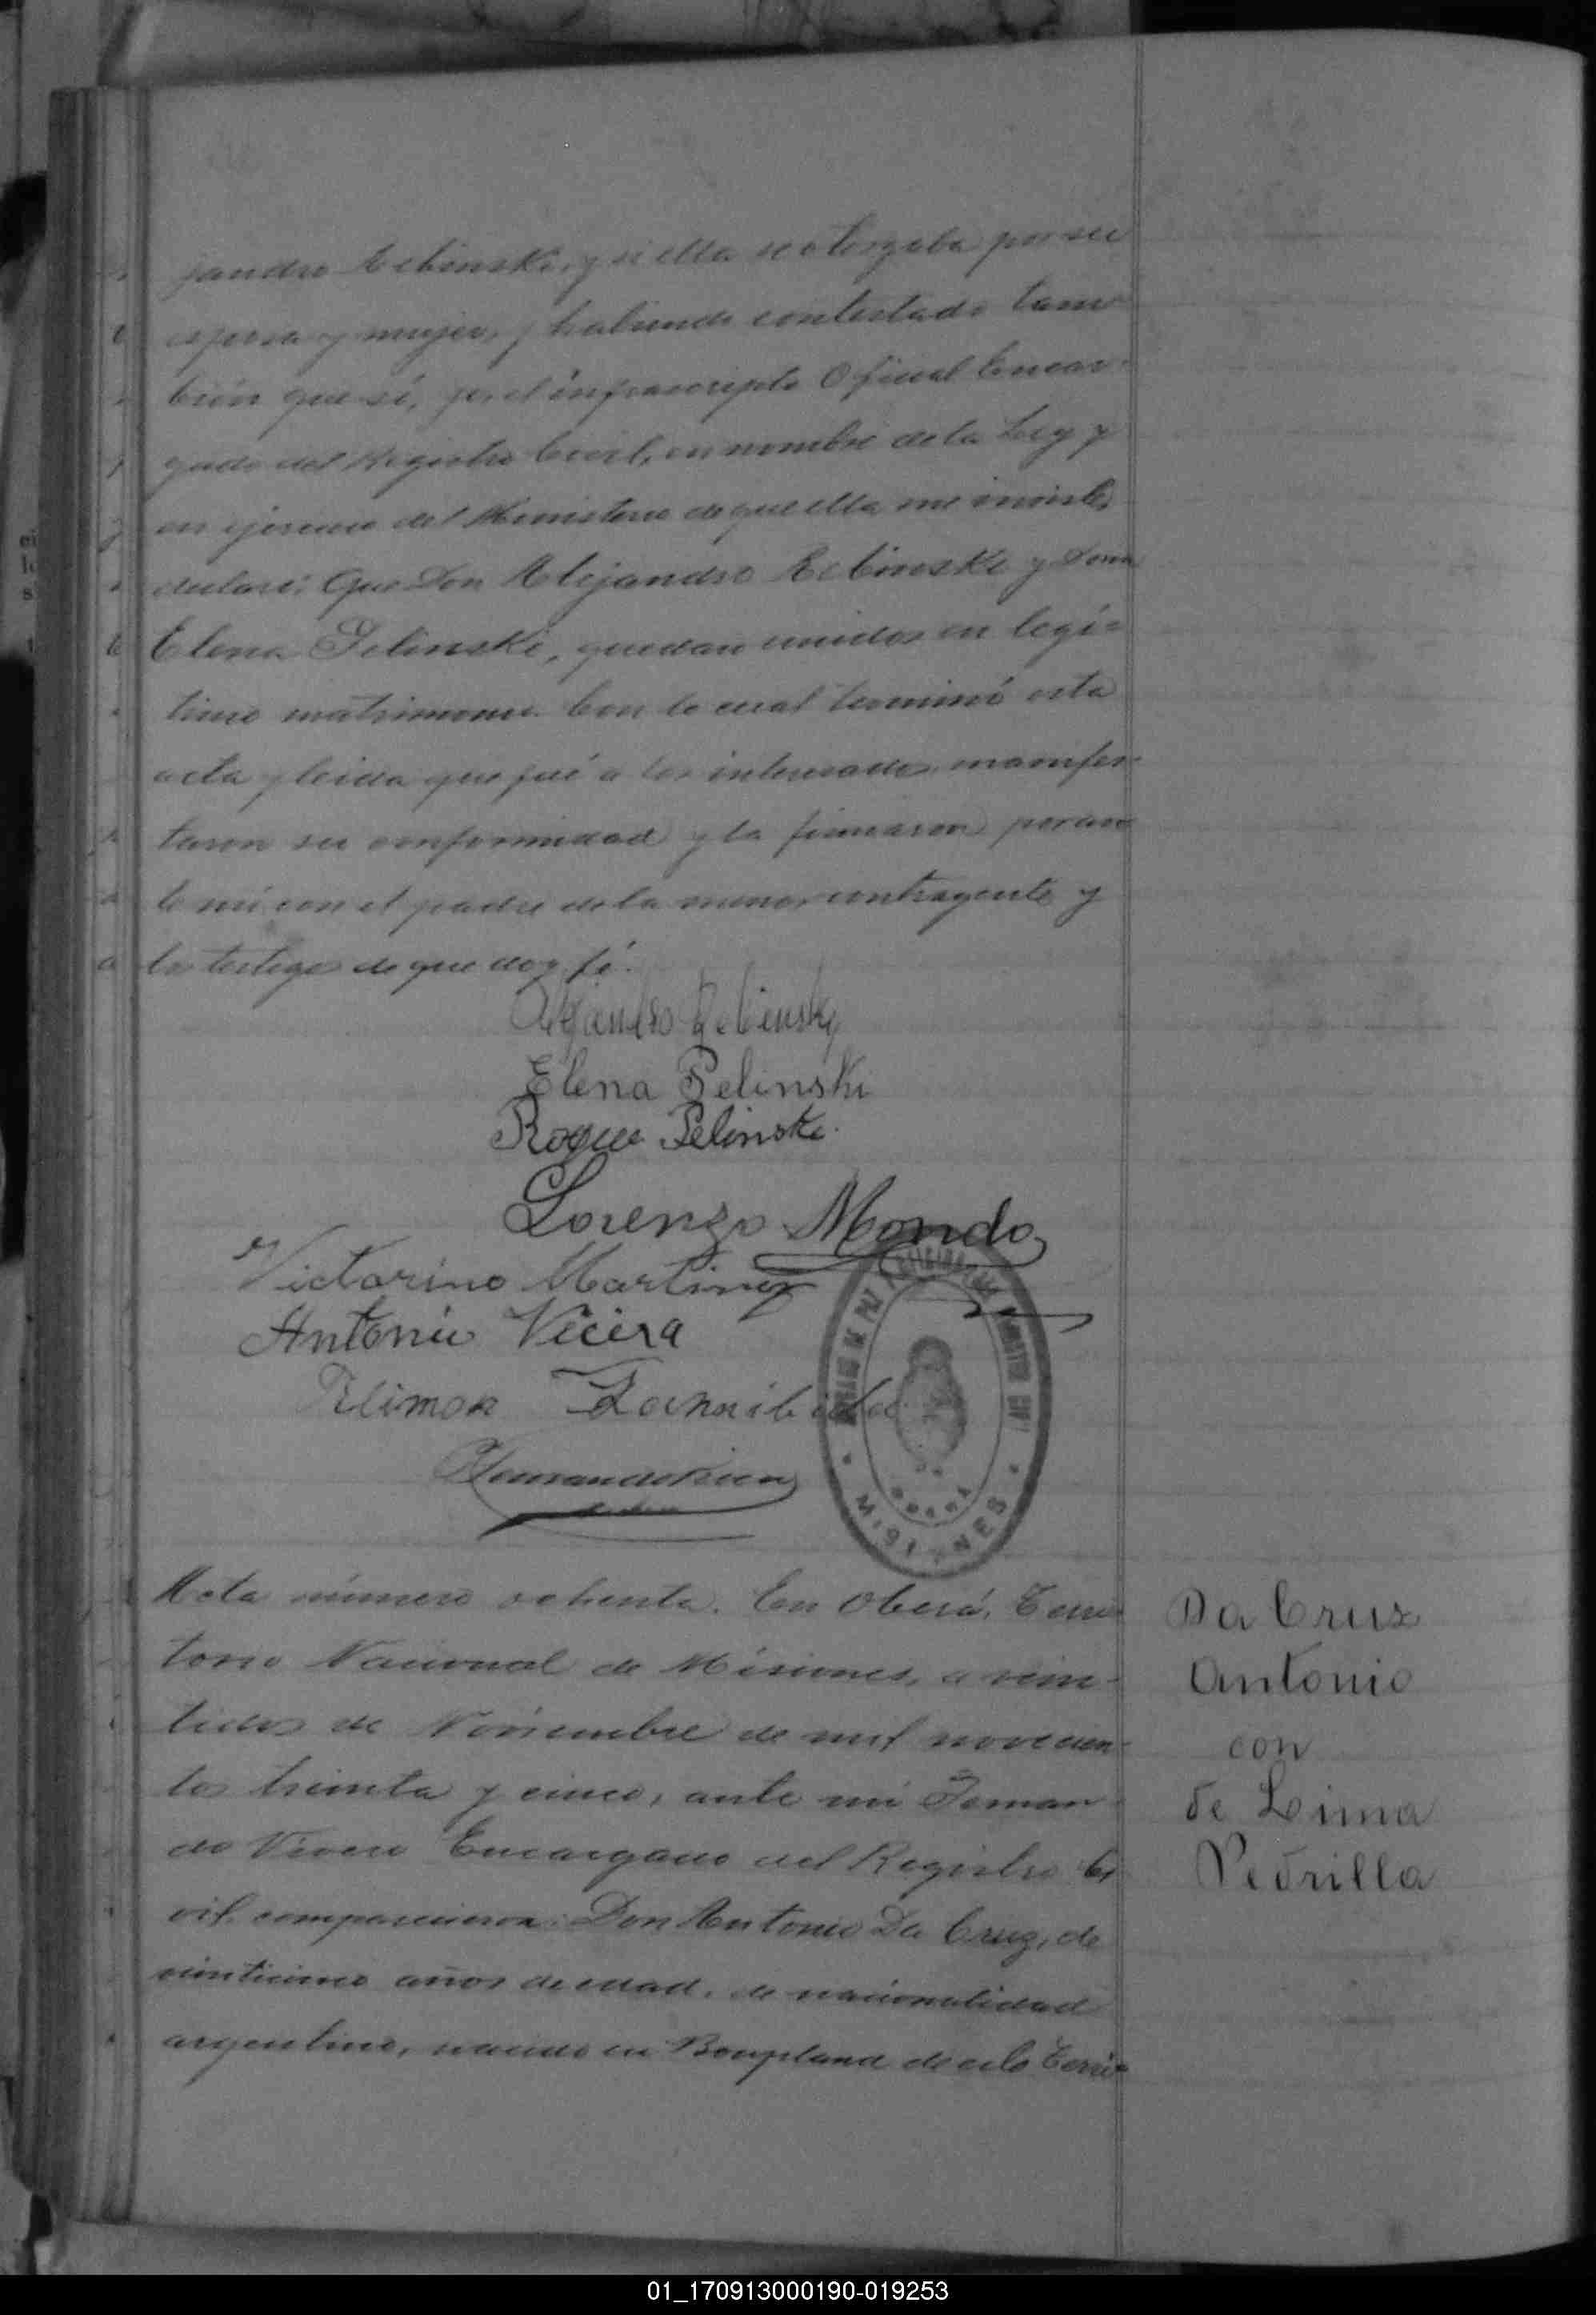 jandro Rebinski, y si ella se otorgaba por su
esposa y mujer, y habiendo contestado tam-
bién que sí, yo, el infrascripto Oficial Encar-
gado del Registro Civil, en nombre de la Ley y
en ejercicio del Ministerio de que ella me inviste,
declaro: Que Don Alejandro Rebinski y Doña
Elena Pelinski, quedan unidos en legí-
timo matrimonio. Con lo cual terminó esta
acta y leida que fué a los interesados, manifes-
taron su conformidad y la firmaron por an-
te mí con el padre de la menor contrayente y
los testigos de que doy fé.
Alejandro Rebinsky
Elena Pelinski
Roque Pelinski.
Lorenzo Mondo
Victorino Martinez
Antonio Vieira
MISIONES
OBERÁ
Acta número ochenta. En Oberá, Terri-
torio Nacional de Misiones, a vein-
tidos de Noviembre de mil novecien-
tos treinta y cinco, ante mi
Encargado del Registro Ci-
vil, comparecieron: Don Antonio Da Cruz, de
veinticinco años de edad, de nacionalidad
argentino, nacido en Bonpland de este Terri-
Da Cruz
Antonio
con
de Lima
Pedrilla
01_170913000190-019253